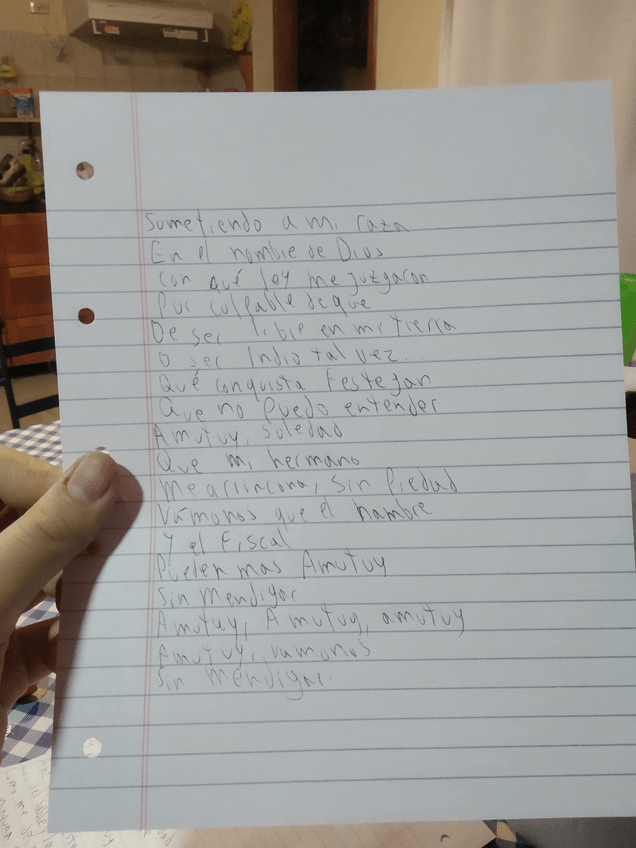 Sometiendo a mi raza
En el nombre de Dios
con qué ley me juzgaron
Por culpable de que
De ser libre en mi tierra
O ser Indio tal vez.
Qué conquista Festegan
Que no Puedo entender
Amutuy, Soledad
Que mi hermano
me arrincona, sin Piedad
Vámonos que el hambre
Y el Fiscal
Pueden mas Amutuy
Sin mendigar
Amutuy, Amutuy, amutuy
Amutuy, vamonos
Sin mendigar.